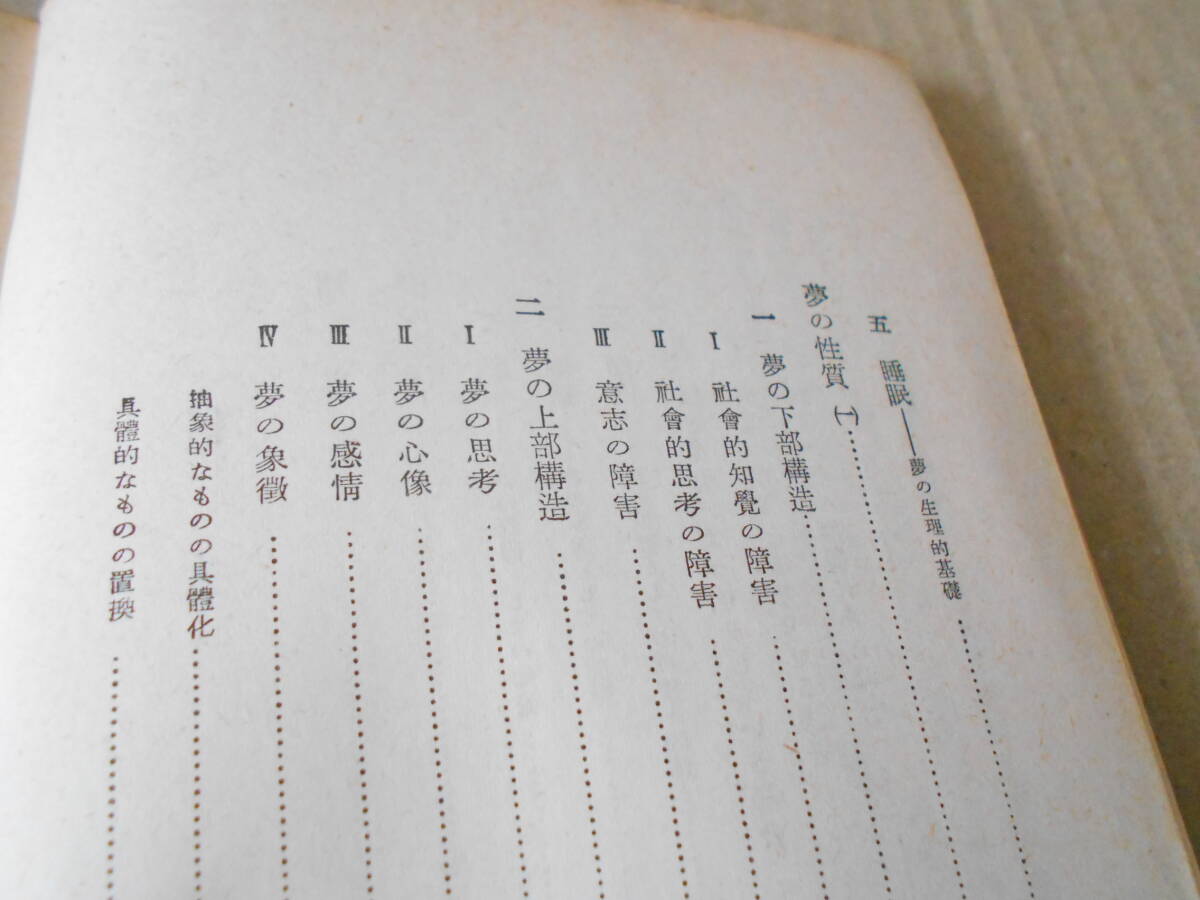 五　睡眠――夢の生理的基礎
夢の性質　㈠
一　夢の下部構造
Ⅰ　社會的知覺の障害
Ⅱ　社會的思考の障害
Ⅲ　意志の障害
二　夢の上部構造
Ⅰ　夢の思考
Ⅱ　夢の心像
Ⅲ　夢の感情
Ⅳ　夢の象徵
抽象的なものの具體化
具體的なものの置換